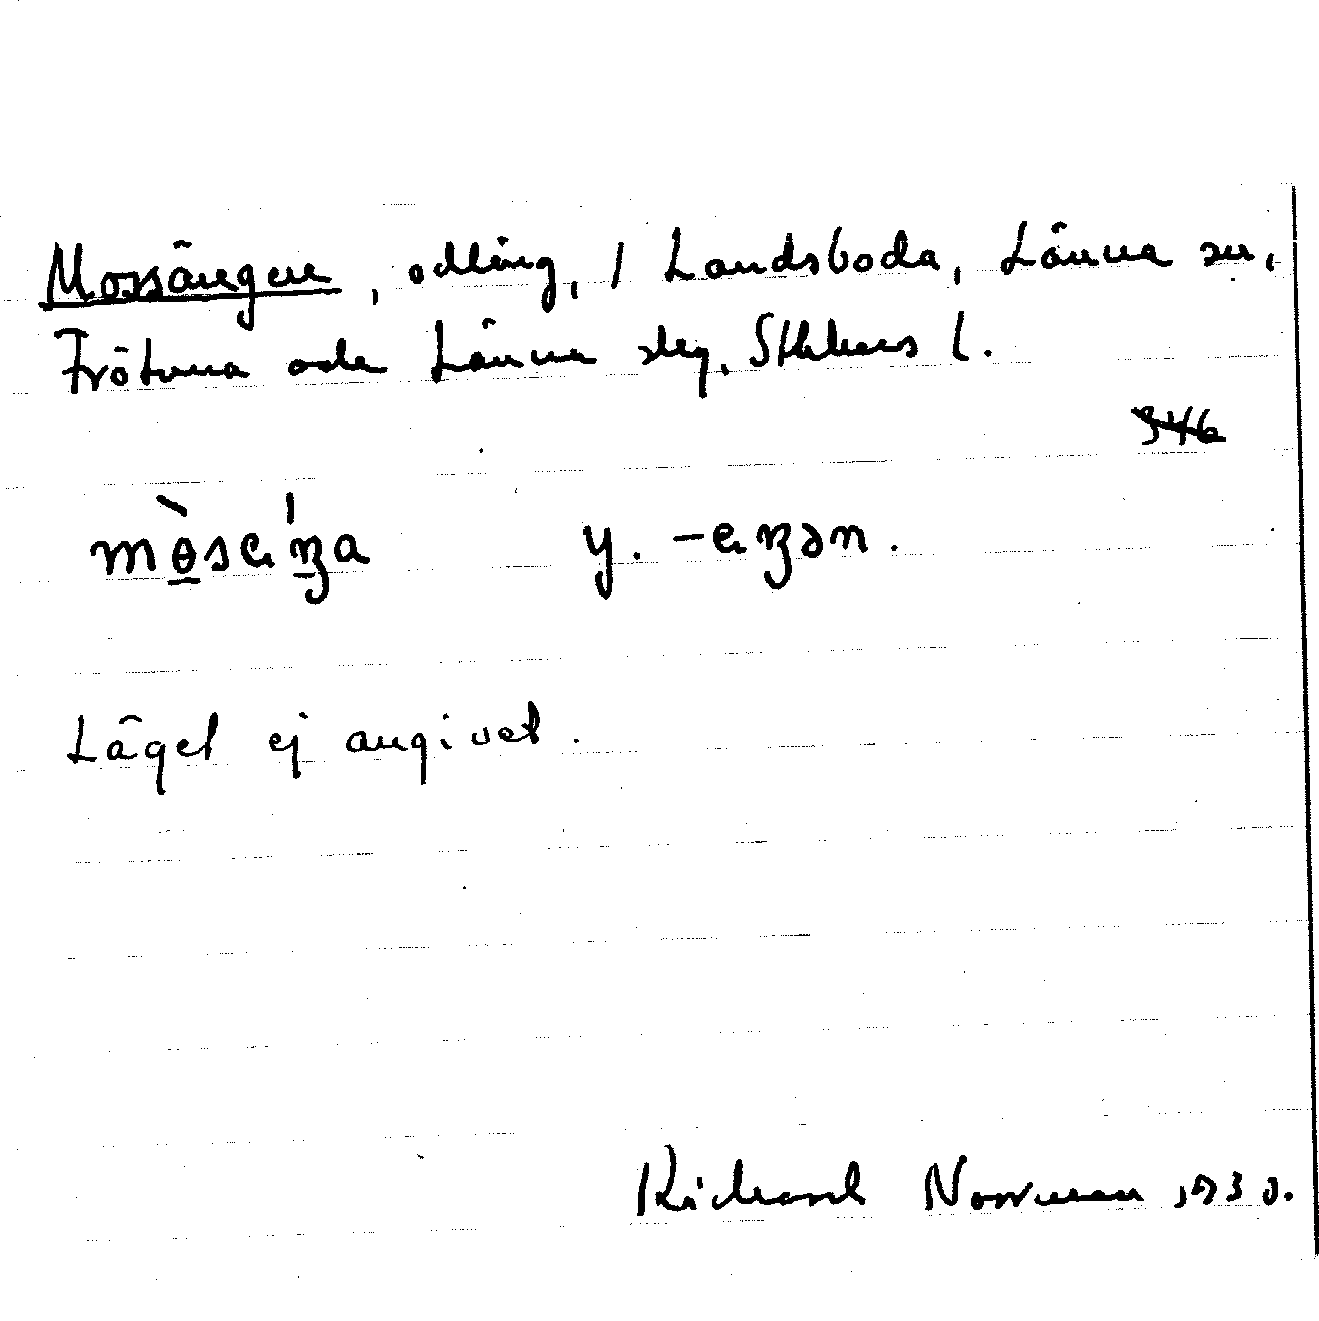 Mossängen, odling, / Landsboda, Länna sn,
Frötuna och Länna slg, Sthlms l.
346
Läget ej angivet.
Richard Norrman 1930.